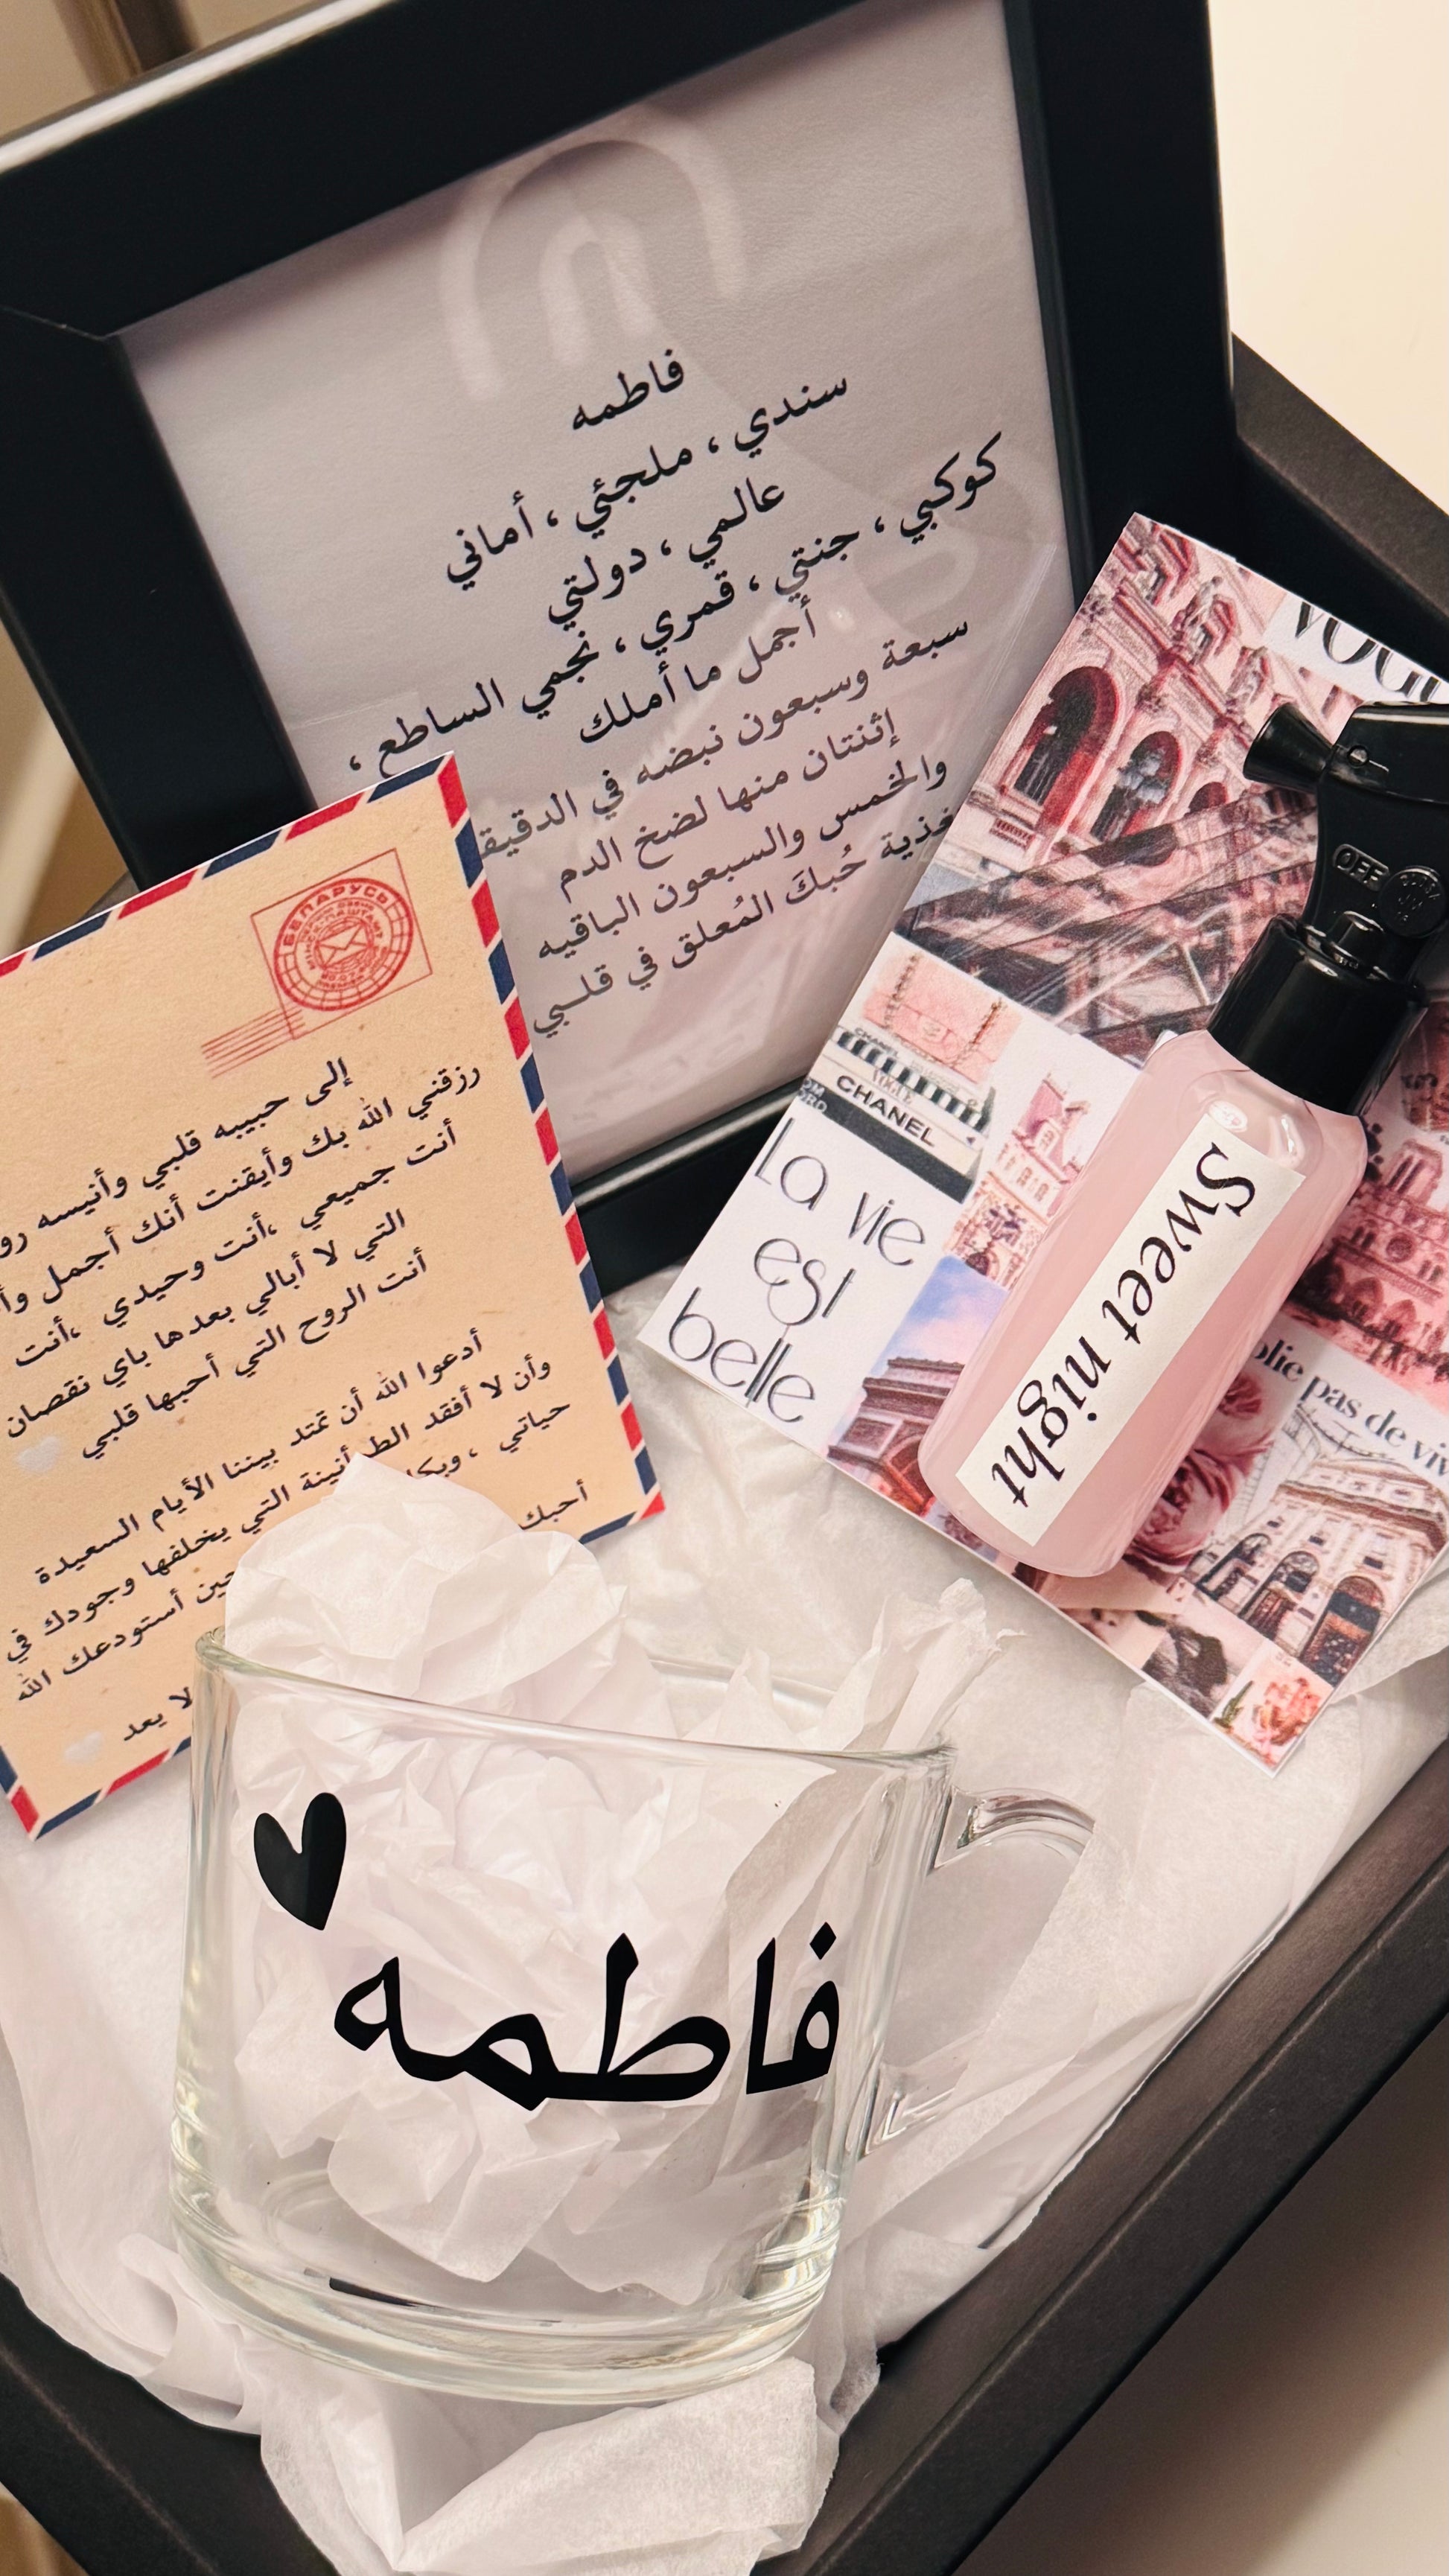 فاطمه
سندي ، ملجئي ، أماني
عالمي ، دولتي
كوكبي ، جنتي ، قمري ، نجمي الساطع ،
أجمل ما أملك
سبعة وسبعون نبضه في
إثنتان منها لضخ الدم
والخمس والسبعون الباقيه
حُبكَ المُعلق في قلبي
БЕЛАРУСЬ
إلى حبيبه قلبي وأنيسه
رزقني الله بك وأيقنت أنك أجمل
أنت جميعي ،أنت وحيدي ،أنت
التي لا أبالي بعدها باي نقصان
أنت الروح التي أحبها قلبي
أدعوا الله أن تمتد بيننا الأيام السعيدة
وأن لا أفقد الطمأنينة التي يخلفها وجودك في
حياتي ، حين أستودعك الله
أحبك لا يعد
VOGUE
CHANEL
VOGUE
CHANEL
TOM
FORD
La vie
est
belle
pas de
OFF
Sweet night
فاطمه